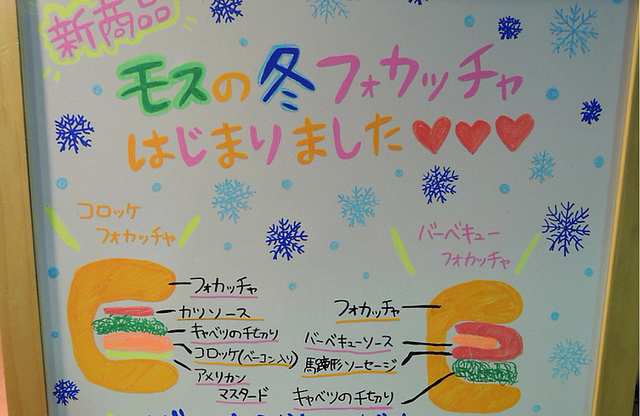 新商品
モスの冬フォカッチャ
はじまりました
コロッケ
フォカッチャ
フォカッチャ
カツソース
キャベツの千切り
コロッケ(ベーコン入り)
アメリカン
マスタード
バーベキュー
フォカッチャ
フォカッチャ
バーベキューソース
馬蹄形ソーセージ
キャベツの千切り